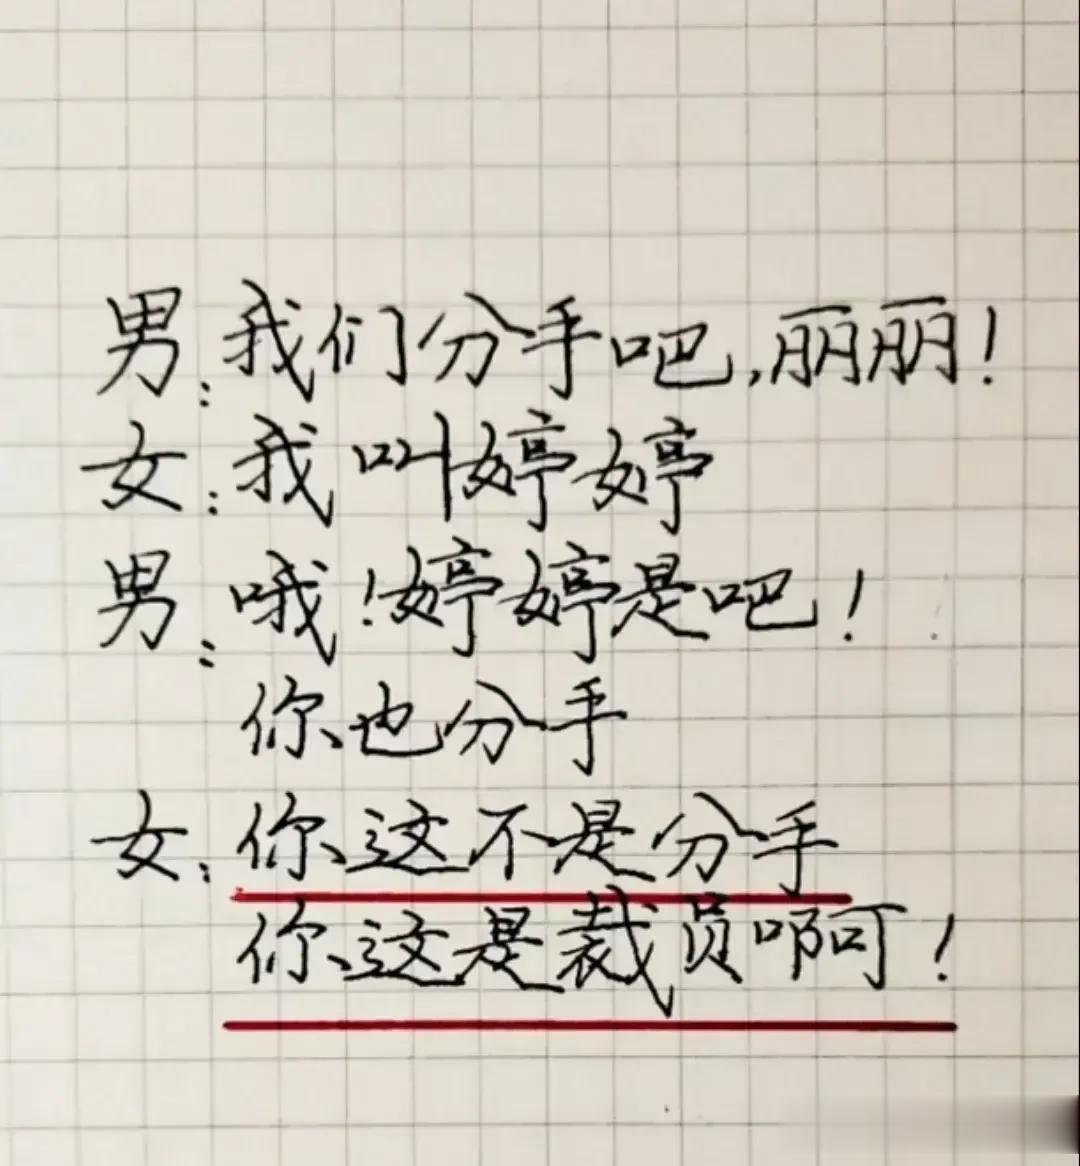 男:我们分手吧,丽丽!
女:我叫婷婷
男:哦!婷婷是吧!
你也分手
女:你这不是分手
你这是裁员啊!